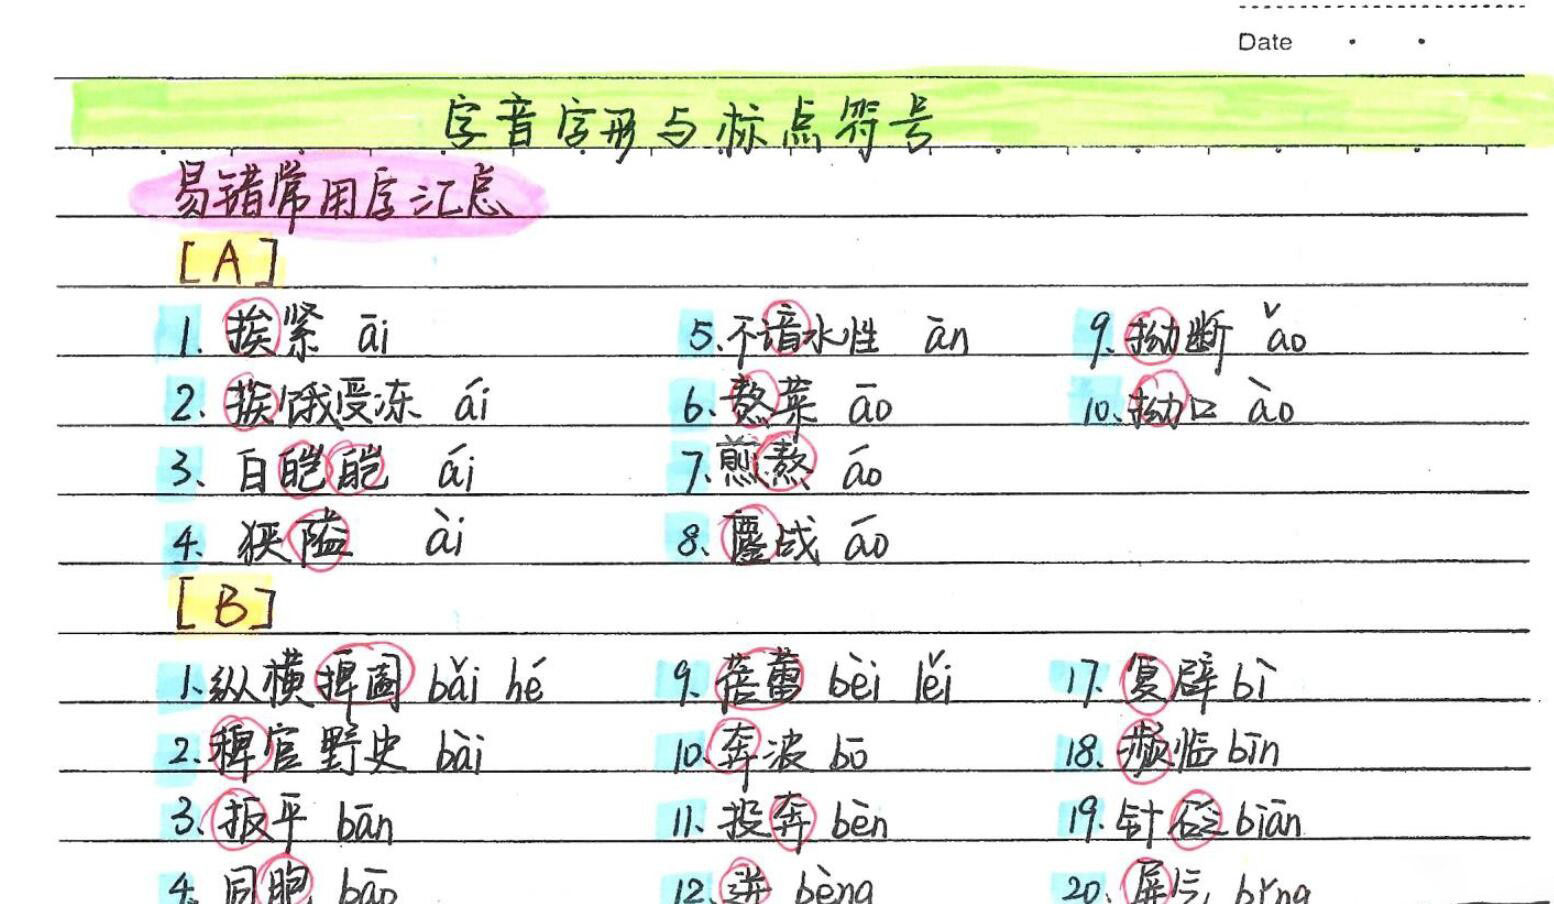 Date
字音字形与标点符号
易错常用字汇总
[A]
1. 挨紧 āi
2. 挨饿受冻 ái
3. 白皑皑 ái
4. 狭隘 ài
5. 不谙水性 ān
6. 熬菜 āo
7. 煎熬 áo
8. 鏖战 áo
9. 拗断 ǎo
10. 拗口 ào
[B]
1. 纵横捭阖 bǎi hé
2. 稗官野史 bài
3. 扳平 bān
4. 同胞 bāo
9. 蓓蕾 bèi lěi
10. 奔波 bō
11. 投奔 bèn
12. 迸 bèng
17. 复辟 bì
18. 濒临 bīn
19. 针砭 biān
20. 屏气 bǐng